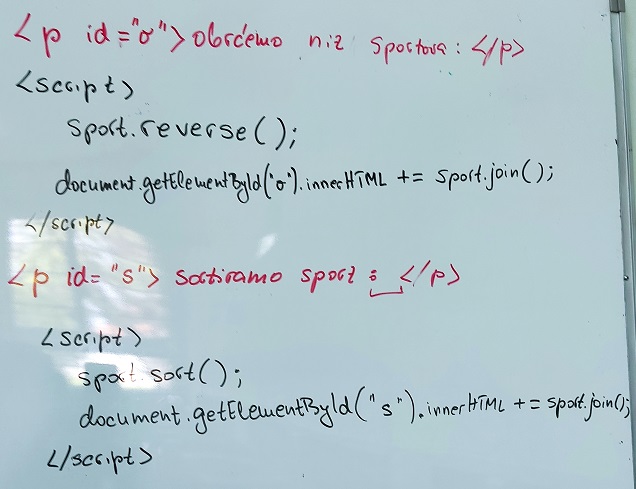 <p id="o">obrćemo niz sportova: </p>
<script>
sport.reverse();
document.getElementById('o').innerHTML += sport.join();
</script>
<p id="s"> sortiramo sport: </p>
<script>
sport.sort();
document.getElementById("s").innerHTML += sport.join();
</script>